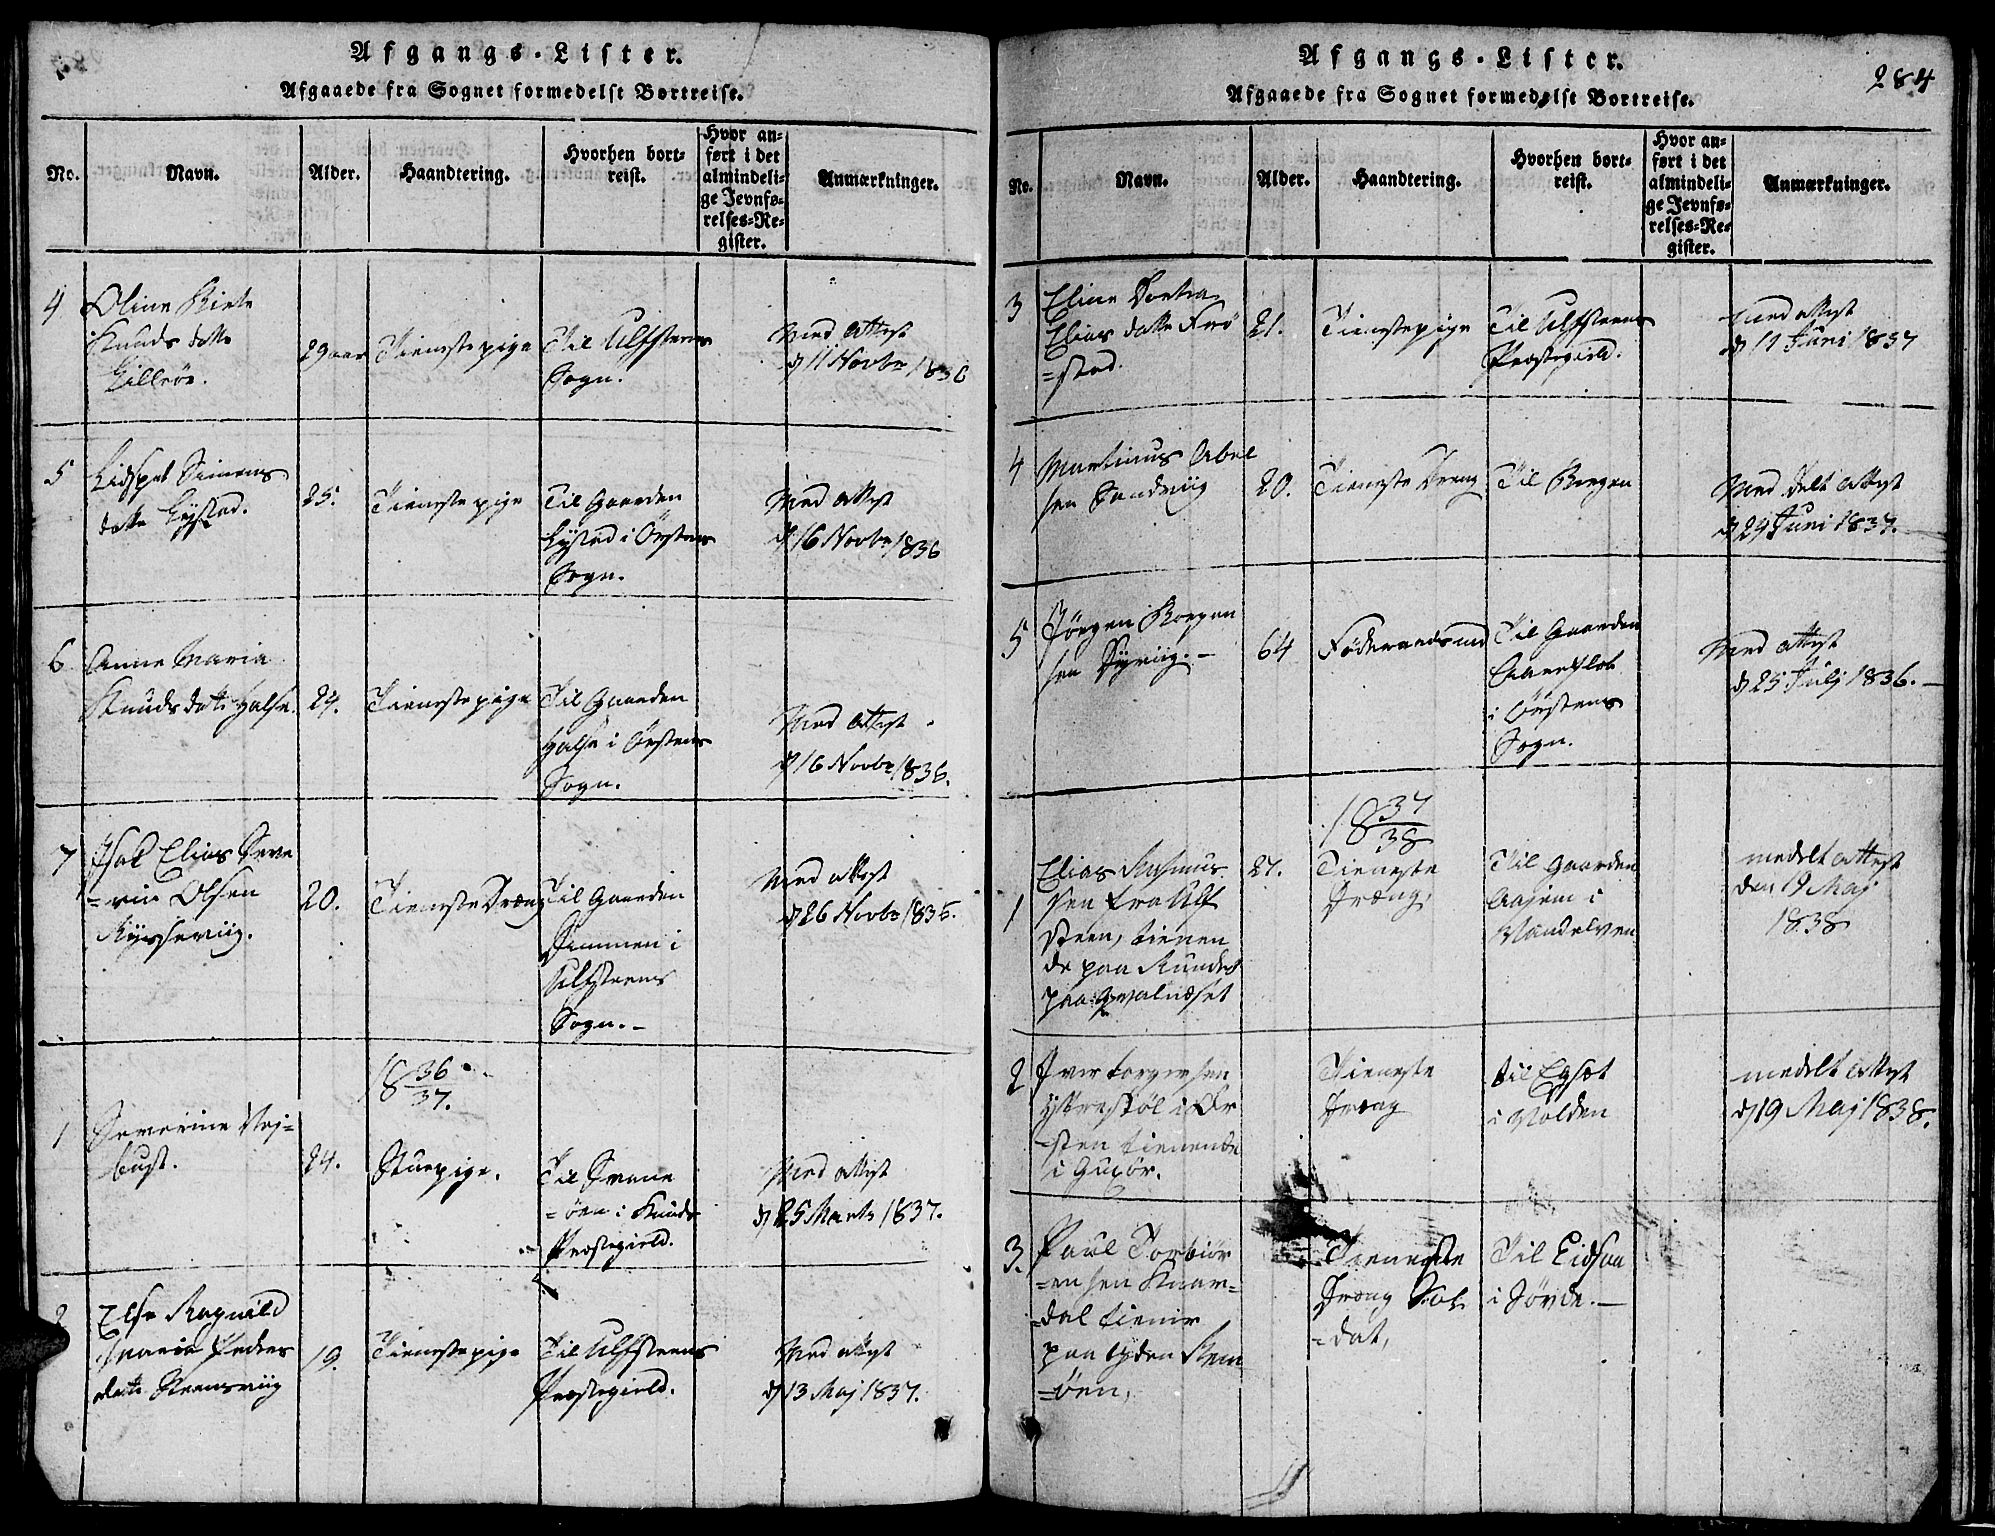 Afgangs-Lister.
Afgaaede fra Sognet formedelst Bortreise.
No.
Navn.
Alder.
Haandtering.
Hvorhen bort-
reist.
Hvor an-
ført i det
almindeli-
ge Jevnfø-
relses-Re-
gister.
Anmærkninger.
4
Oline Birte
Knuds datte
Lillesøe.
29 aar
Tienestepige
Til Ulfsteens
Sogn.
Med Attest
d 11 Novbr 1836
5
Lidspet Simens
datte Lystad.
25.
Tienestepige
Til Gaarden
Lystad i Ørstens
Sogn.
Med Attest
d 16 Novbr 1836
6
Anne Maria
Knudsdatte Halse.
24.
Tienestepige
Til Gaarden
Halse i Ørstens
Sogn.
Med Attest
d 16 Novbr 1836.
7
Isak Elias Seve
=rin Olsen
20.
Tieneste Dreng
Til Gaarden
Dimmen i
Ulfsteens
Sogn.-
Med Attest
d 26 Novbr 1836.
18 36/37.
1
Severine Vej=
bust.
24.
Stuepige.
Til Svane
=øen i Kinds
Præstegield.
Med Attest
d 25 Marts 1837.
2
Else Ragnild
Maria Peders
datte Steensviig
19.
Tienestepige
Til Ulfsteens
Præstegield.
Med Attest
d 13 Maj 1837.
Afgangs-Lister.
284
Afgaaede fra Sognet formedelst Bortreise.
No.
Navn.
Alder.
Haandtering.
Hvorhen bort-
reist.
Hvor an-
ført i det
almindeli-
ge Jevnfø-
relses-Re-
gister.
Anmærkninger.
3
Eline Dortea
Elias datte Frø
=stad.
21.
Tienestepige
Til Ulfsteens
Præstegield.
Med Attest
d 11 Juni 1837
4
Martinus Abel
sen Sandviig
20.
Tieneste Dreng
Til Bergen
Med delt Attest
d 24 Juni 1837.
5
Jørgen
sen
64
Føderaadsmd
Til Gaarden
Aareflot
i Ørstens
Sogn.
Med Attest
d 25 Julj 1836.-
18 37/38
1
Elias Rasmus
sen fra Ulf
steen, tienen
de paa Runde
paa Qvalneset
27.
Tieneste
Dræng,
Til Gaarden
Aajem i
Vandelven
medelt Attest
den 19 Maj
1838
2
Iver Torgersen
Ystreskøl i Ør
sten tienende
i Gurør.
Tieneste
Dræng
til Egset
i Volden
medelt Attest
d 19 Maj 1838.
3.
Paul Torbiør
=ensen Knar=
=dal tiener
paa Gjden Rem
=øen,
Tieneste
Dræng Sol
=dat,
Til Eidsaa
i Søvde.-